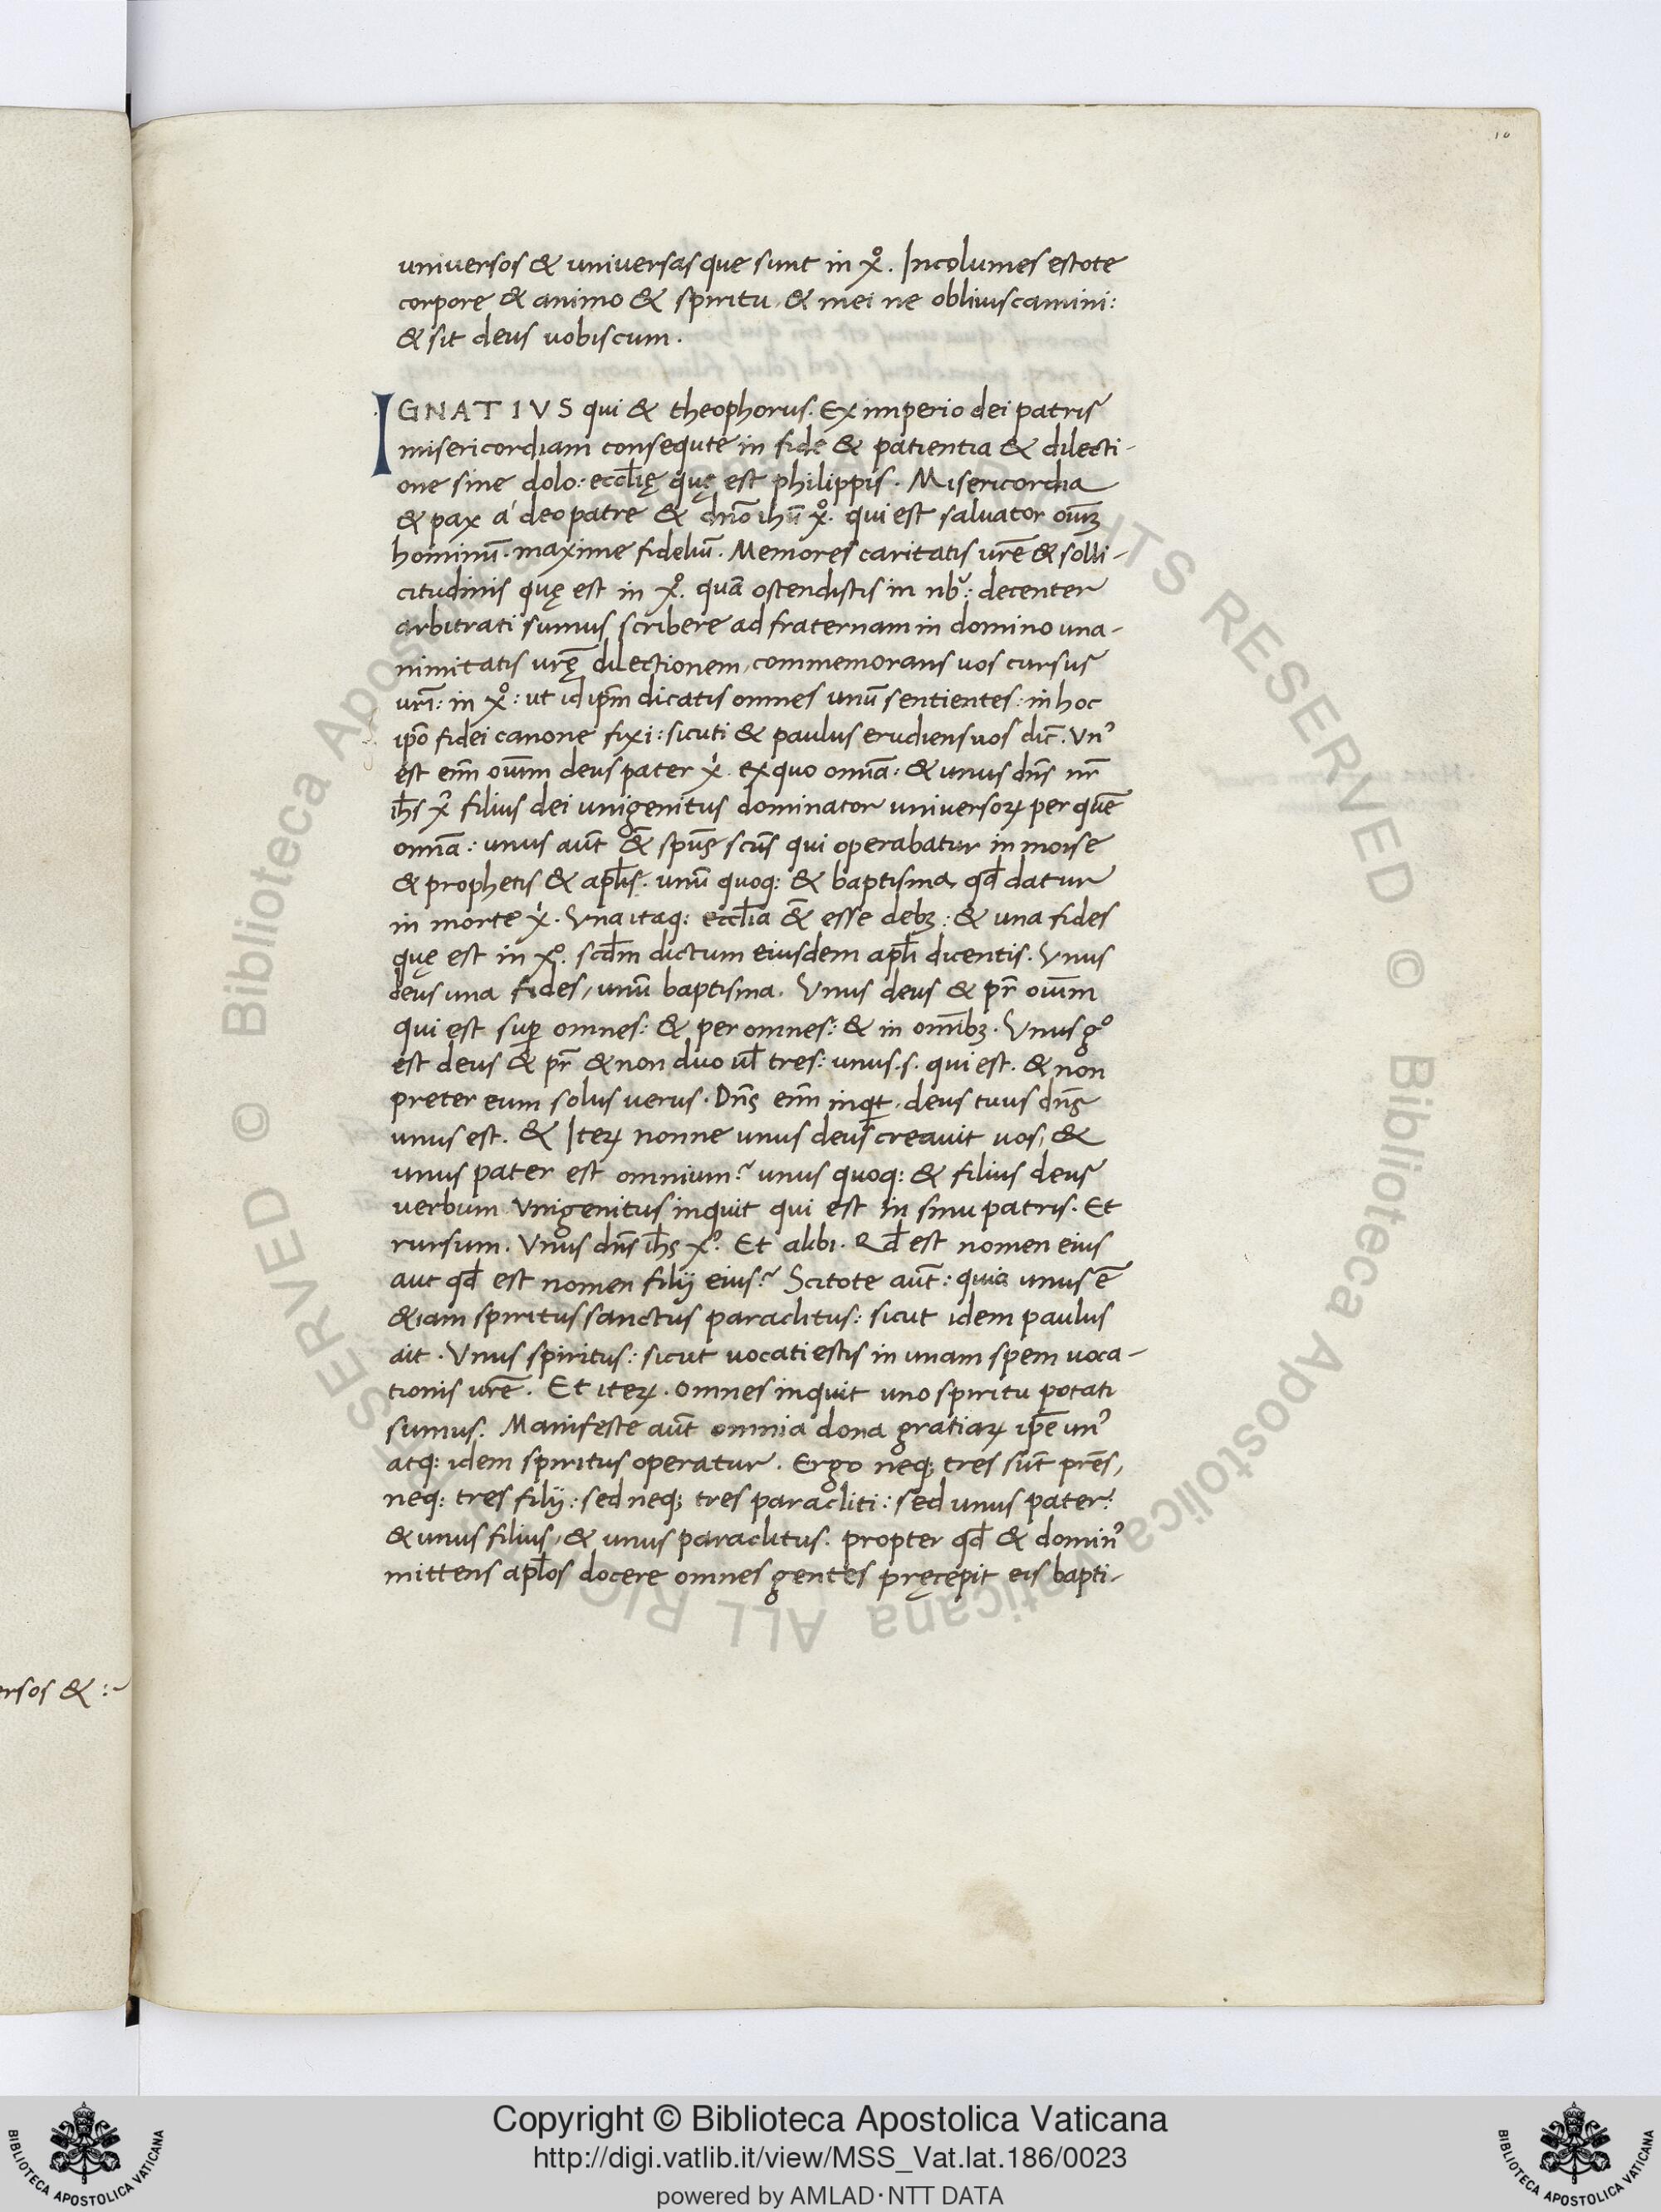 10
universos & universas que sunt in xº. Incolumes estote
corpore & animo & spiritu & mei ne obliuiscamini:
& sit deus uobiscum.
IGNATIVS qui & theophorus. Ex imperio dei patris
misericordiam consequte in fide & patientia & dilecti-
one sine dolo: eccl̄ię quę est philippis. Misericordia
& pax a' deo patre & dn̄o ihū xº. qui est saluator oiūm
hominū. maxime fideliū. Memores caritatis ur̄e & solli-
citudinis quę est in xº. quā ostendistis in nb̄: decenter
arbitrati sumus scribere ad fraternam in domino una-
nimitatis ur̄ę dilectionem, commemorans uos cursus
ur̄i: in xº: ut id ip̄m dicatis omnes unū sentientes: in hoc
ip̄o fidei canone fixi: sicuti & paulus erudiens uos dic̄. Vn᾽
est eni̅ oiūm deus pater xi. ex quo omīa: & unus dn̄s nr̄
ih̄s x᾽ filius dei unigenitus dominator universoꝝ per quē
omīa: unus aūt & sp̄us sc̄us qui operabatur in moise
& prophetis & apl̄is. unū quoq: & baptisma qd̄ datur
in morte xi. Vna itaq: eccl̄ia & esse debꝫ: & una fides
quę est in xº. scd̄m dictum eiusdem apl̄i dicentis. Vnus
deus una fides, unū baptisma. Vnus deus & pr̄ oiūm
qui est suꝑ omnes: & per omnes: & in omībꝫ. Vnus gº
est deus & pr̄ & non duo ul̄ tres: unus .s. qui est. & non
preter eum solus uerus. Dn̄s eni̅ inqt, deus tuus dn̄s
unus est. & Iteꝝ nonne unus deus creauit uos, &
unus pater est omnium? unus quoq: & filius deus
verbum Vnigenitus inquit qui est in sinu patris. Et
rursum. Vnus dn̄s ih̄s x᾽. Et alibi. Qd̄ est nomen eius
aut qd̄ est nomen filij eius? Scitote aūt: quia unus ē
&iam spiritus sanctus paraclitus: sicut idem paulus
ait. Vnus spiritus: sicut uocati estis in unam spem uoca-
tionis ur̄e. Et iteꝝ. omnes inquit uno spiritu potati
sumus. Manifeste aūt omnia dona gratiaꝝ ip̄e un᾽
atq: idem spiritus operatur. Ergo neq; tres sūt pr̄es,
neq: tres filij: sed neq; tres paracliti: sed unus pater:
& unus filius, & unus paraclitus. propter qd̄ & domin᾽
mittens apl̄os docere omnes gentes pręcepit eis bapti-
ersos & :~
© Biblioteca Apostolica Vaticana ALL RIGHTS RESERVED
Copyright © Biblioteca Apostolica Vaticana
http://digi.vatlib.it/view/MSS_Vat.lat.186/0023
powered by AMLAD·NTT DATA
BIBLIOTECA APOSTOLICA VATICANA
BIBLIOTECA APOSTOLICA VATICANA